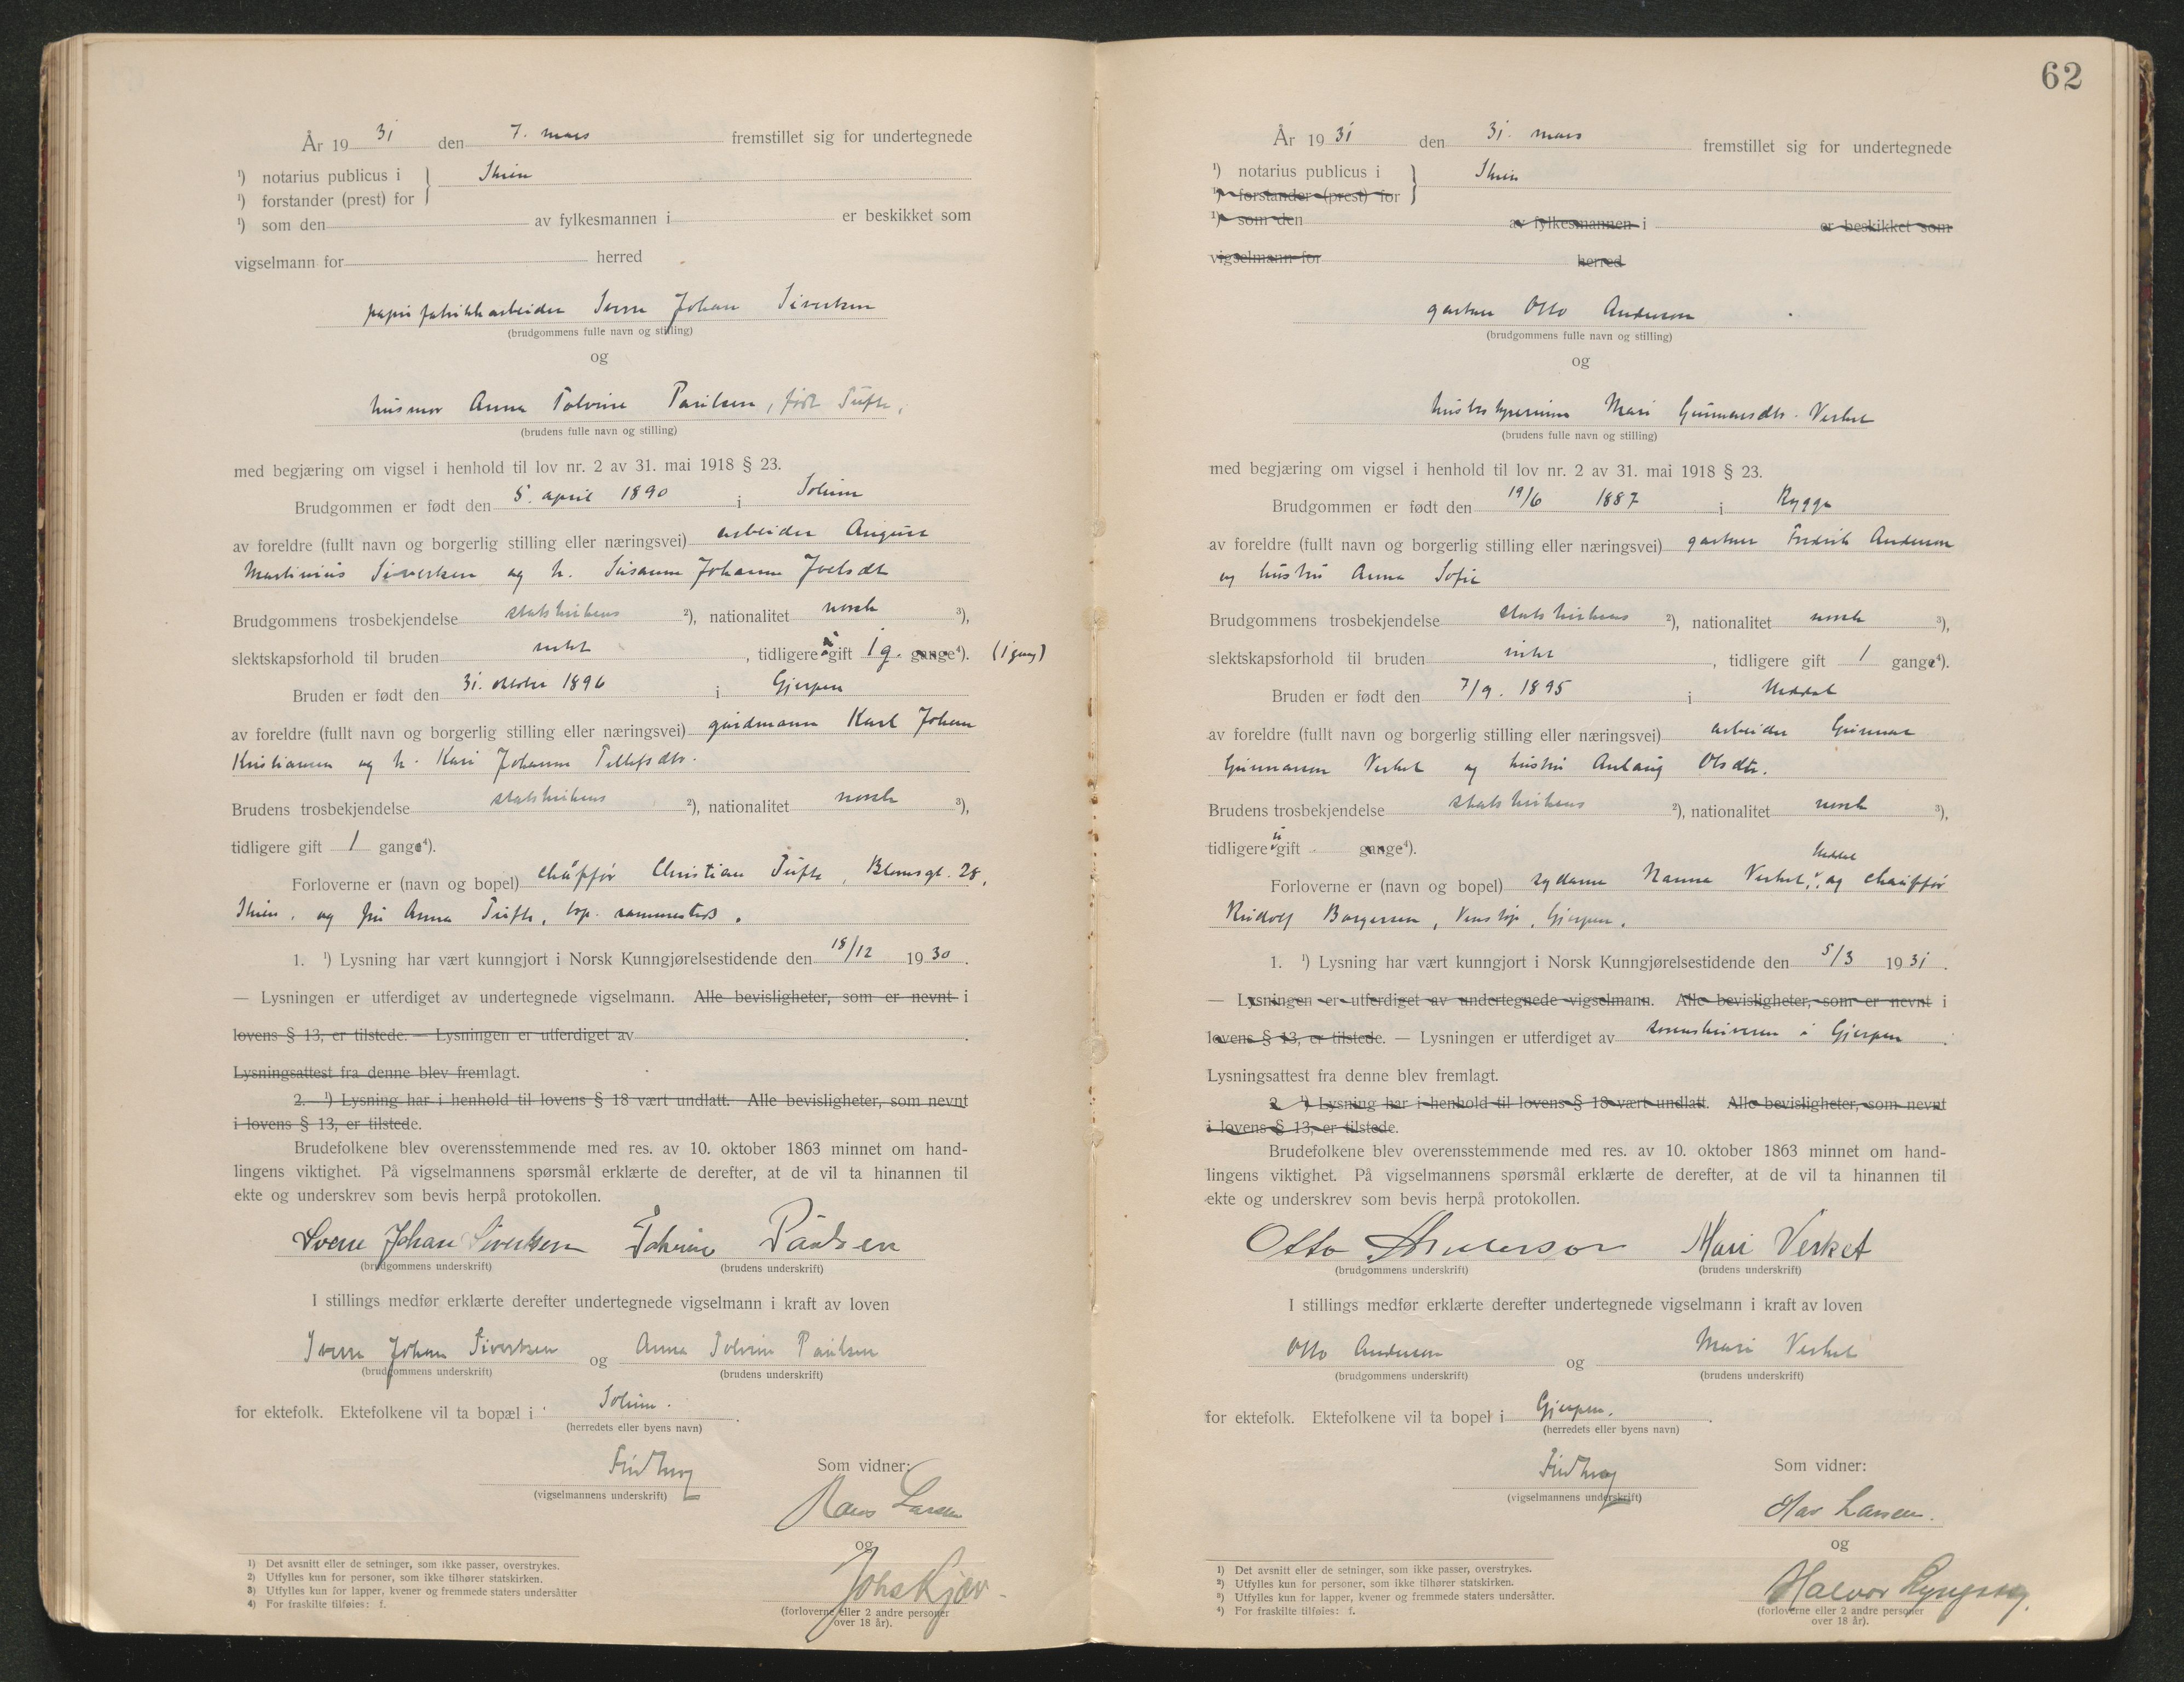 År 19 31 den 7. mars fremstillet sig for undertegnede
¹) notarius publicus i } Skien
¹) forstander (prest) for
¹) som den av fylkesmannen i er beskikket som
vigselmann for herred
papirfabrikkarbeider Sverre Johan Sivertsen
(brudgommens fulle navn og stilling)
og
husmor Anna Tolvine Paulsen, født Tufte,
(brudens fulle navn og stilling)
med begjæring om vigsel i henhold til lov nr. 2 av 31. mai 1918 § 23.
Brudgommen er født den 5. april 1890 i Solum
av foreldre (fullt navn og borgerlig stilling eller næringsvei) arbeider August
Martinius Sivertsen og h. Susanne Johanne Joelsdt
Brudgommens trosbekjendelse statskirkens ²), nationalitet norsk ³),
slektskapsforhold til bruden intet , tidligere ugift 1 g. gange⁴). (1 gang)
Bruden er født den 31. oktober 1896 i Gjerpen
av foreldre (fullt navn og borgerlig stilling eller næringsvei) gårdmann Karl Johan
Kristiansen og h. Kari Johanne Tellefsdtr.
Brudens trosbekjendelse statskirkens ²), nationalitet norsk ³),
tidligere gift 1 gange⁴).
Forloverne er (navn og bopel) chauffør Christian Tufte, Blomsgt. 28,
Skien, og fru Anna Tufte, bop. sammesteds.
1. ¹) Lysning har vært kunngjort i Norsk Kunngjørelsestidende den 18/12 19 30.
— Lysningen er utferdiget av undertegnede vigselmann. Alle bevisligheter, som er nevnt i
lovens § 13, er tilstede. — Lysningen er utferdiget av .
Lysningsattest fra denne blev fremlagt.
2. ¹) Lysning har i henhold til lovens § 18 vært undlatt. Alle bevisligheter, som nevnt
i lovens § 13, er tilstede.
Brudefolkene blev overensstemmende med res. av 10. oktober 1863 minnet om hand-
lingens viktighet. På vigselmannens spørsmål erklærte de derefter, at de vil ta hinannen til
ekte og underskrev som bevis herpå protokollen.
Sverre Johan Sivertsen Tolvine Paulsen
(brudgommens underskrift) (brudens underskrift)
I stillings medfør erklærte derefter undertegnede vigselmann i kraft av loven
Sverre Johan Sivertsen og Anna Tolvine Paulsen
(brudgommens underskrift) (brudens underskrift)
for ektefolk. Ektefolkene vil ta bopæl i Solum.
(herredets eller byens navn)
Som vidner:
(vigselmannens underskrift)
Hans Larsen
og
Johs Kjær
(forloverne eller 2 andre personer
over 18 år).
1) Det avsnitt eller de setninger, som ikke passer, overstrykes.
2) Utfylles kun for personer, som ikke tilhører statskirken.
3) Utfylles kun for lapper, kvener og fremmede staters undersåtter
4) For fraskilte tilføies: f.
62
År 19 31 den 31. mars fremstillet sig for undertegnede
¹) notarius publicus i } Skien
¹) forstander (prest) for
¹) som den av fylkesmannen i er beskikket som
vigselmann for herred
gartner Otto Anderson
(brudgommens fulle navn og stilling)
og
husbestyrerinne Mari Gunnarsdtr. Verket
(brudens fulle navn og stilling)
med begjæring om vigsel i henhold til lov nr. 2 av 31. mai 1918 § 23.
Brudgommen er født den 19/6 1887 i Rygge
av foreldre (fullt navn og borgerlig stilling eller næringsvei) gartner Fredrik Anderson
og hustru Anna Sofie
Brudgommens trosbekjendelse statskirkens ²), nationalitet norsk ³),
slektskapsforhold til bruden intet , tidligere gift 1 gange⁴).
Bruden er født den 7/9. 1895 i Heddal
av foreldre (fullt navn og borgerlig stilling eller næringsvei) arbeider Gunnar
Gunnarson Verket og hustru Anlaug Olsdtr.
Brudens trosbekjendelse statskirkens ²), nationalitet norsk ³),
tidligere ugift gange⁴).
Forloverne er (navn og bopel) sydame Nanna Verket, Heddal, og chauffør
Rudolf Borgersen, Venstøp, Gjerpen.
1. ¹) Lysning har vært kunngjort i Norsk Kunngjørelsestidende den 5/3 19 31.
— Lysningen er utferdiget av undertegnede vigselmann. Alle bevisligheter, som er nevnt i
lovens § 13, er tilstede. — Lysningen er utferdiget av sorenskriveren i Gjerpen.
Lysningsattest fra denne blev fremlagt.
2. ¹) Lysning har i henhold til lovens § 18 vært undlatt. Alle bevisligheter, som nevnt
i lovens § 13, er tilstede.
Brudefolkene blev overensstemmende med res. av 10. oktober 1863 minnet om hand-
lingens viktighet. På vigselmannens spørsmål erklærte de derefter, at de vil ta hinannen til
ekte og underskrev som bevis herpå protokollen.
Otto Anderson Mari Verket
(brudgommens underskrift) (brudens underskrift)
I stillings medfør erklærte derefter undertegnede vigselmann i kraft av loven
Otto Anderson og Mari Verket
(brudgommens underskrift) (brudens underskrift)
for ektefolk. Ektefolkene vil ta bopel i Gjerpen.
(herredets eller byens navn)
Som vidner:
(vigselmannens underskrift)
Olav Larsen.
og
Halvor
(forloverne eller 2 andre personer
over 18 år).
1) Det avsnitt eller de setninger, som ikke passer, overstrykes.
2) Utfylles kun for personer, som ikke tilhører statskirken.
3) Utfylles kun for lapper, kvener og fremmede staters undersåtter.
4) For fraskilte tilføies: f.